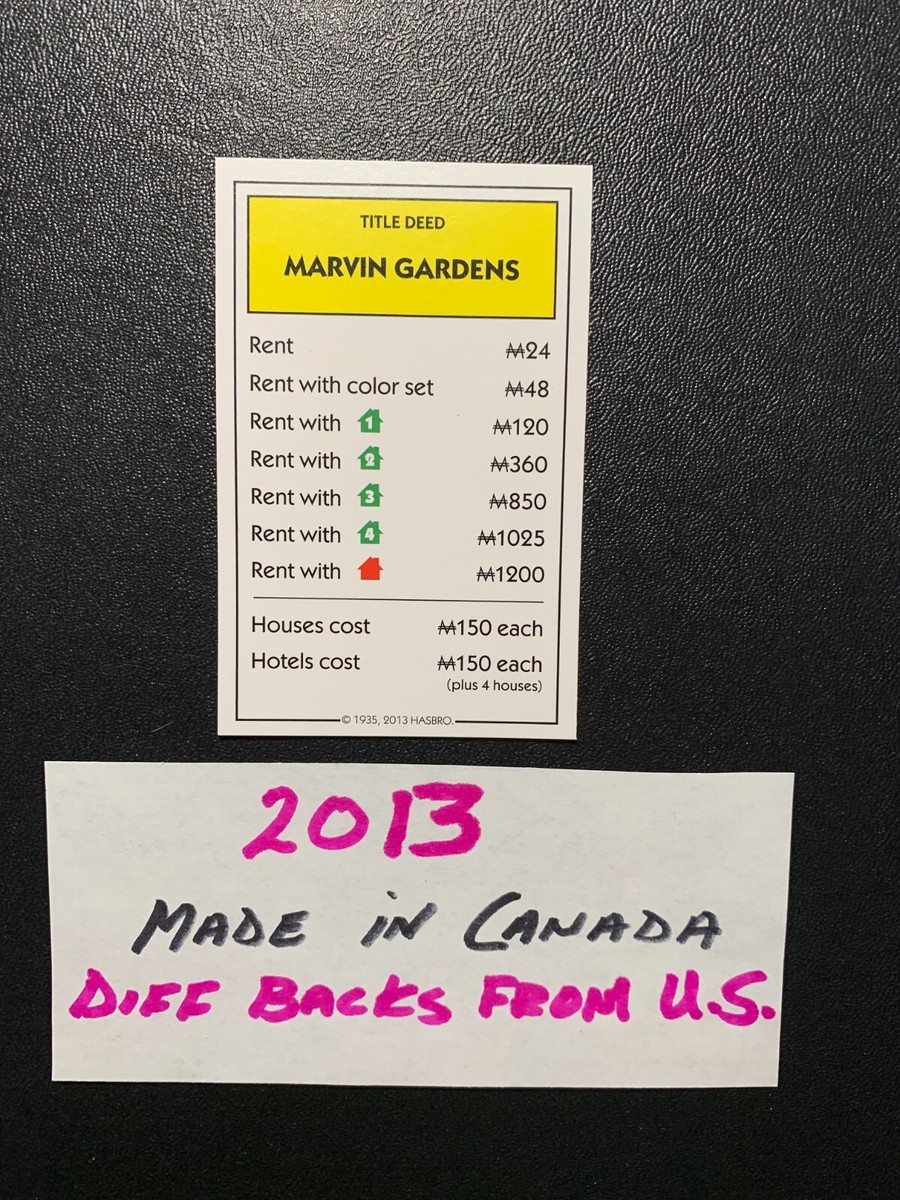 TITLE DEED
MARVIN GARDENS
Rent ₩24
Rent with color set ₩48
Rent with 1 ₩120
Rent with 2 ₩360
Rent with 3 ₩850
Rent with 4 ₩1025
Rent with ₩1200
Houses cost ₩150 each
Hotels cost ₩150 each
(plus 4 houses)
© 1935, 2013 HASBRO.
2013
MADE IN CANADA
DIFF BACKS FROM U.S.